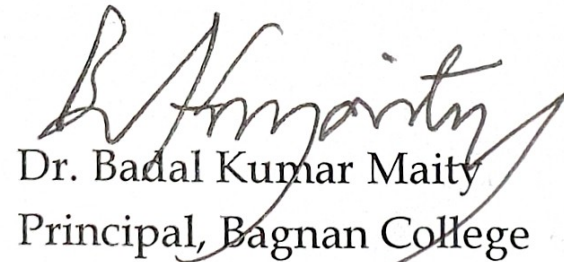 B Kr Maity
Dr. Badal Kumar Maity
Principal, Bagnan College